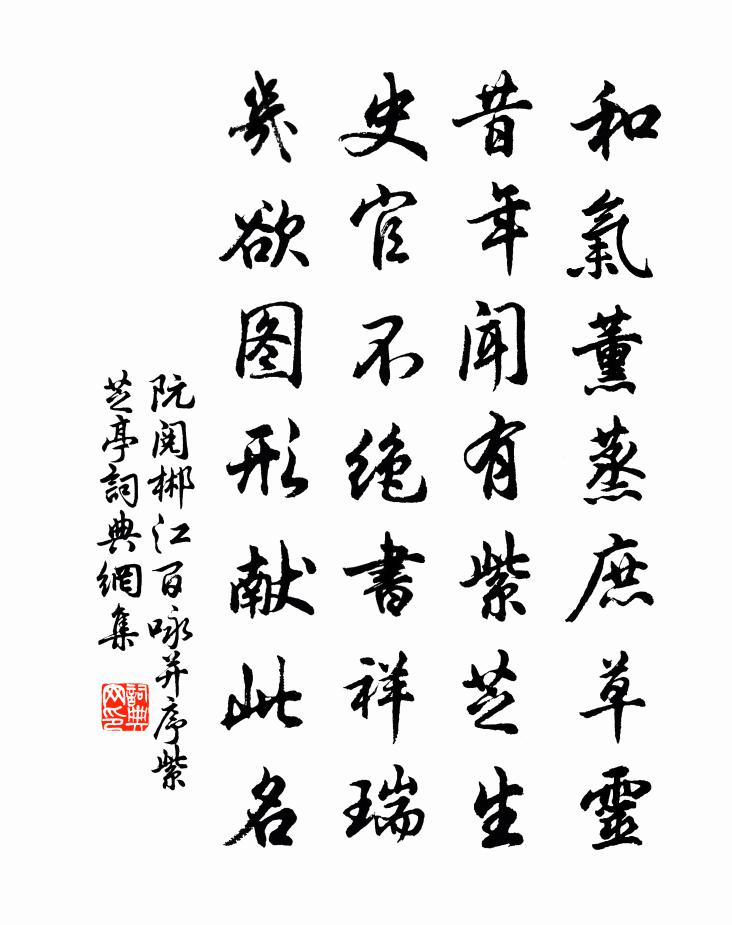 和氣薰蒸庶草靈
昔年聞有紫芝生
史官不絶書祥瑞
幾欲图形献此名
阮閱郴江百咏并序紫
芝亭詞典網集
詞典网印